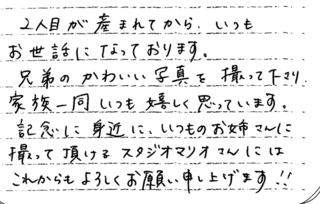 2人目が産まれてから、いつも
お世話になっております。
兄弟のかわいい写真を撮って下さり
家族一同いつも嬉しく思っています。
記念に身近に、いつものお姉さんに
撮って頂けるスタジオマリオさんには
これからもよろしくお願い申し上げます!!